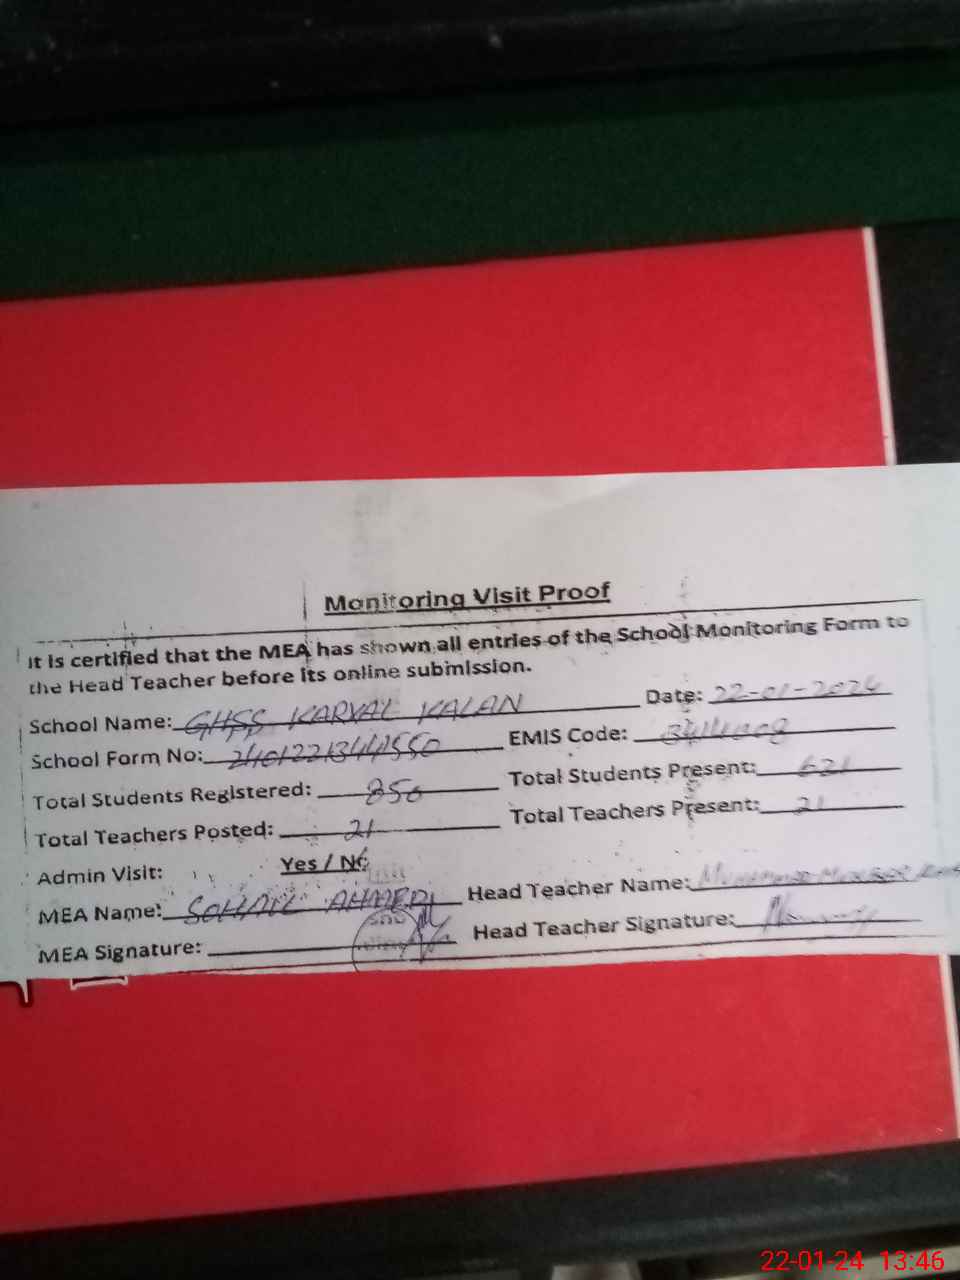 Monitoring Visit Proof
It is certified that the MEA has shown all entries of the School Monitoring Form to
the Head Teacher before its online submission.
School Name: GHSS KARYAL KALAN Date: 22-01-2024
School Form No: EMIS Code:
Total Students Registered: 850 Total Students Present: 621
Total Teachers Posted: 21 Total Teachers Present: 21
Admin Visit: Yes / No
MEA Name: SOHAIL AHMED Head Teacher Name:
MEA Signature: Head Teacher Signature:
22-01-24 13:46